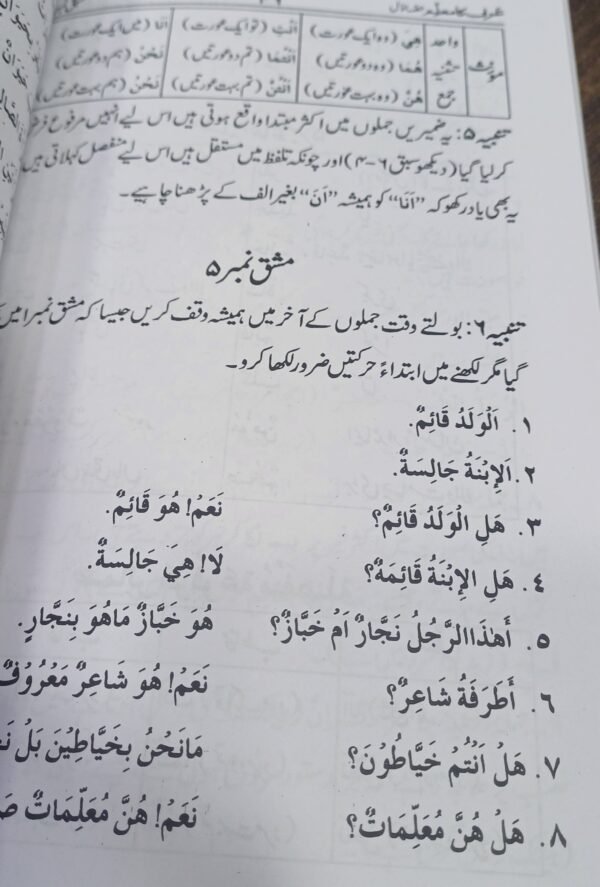 عربی کا معلّم حصّہ اوّل
مؤنث واحد هِيَ (وہ ایک عورت) اَنْتِ (تو ایک عورت) اَنَا (میں ایک عورت)
تثنیہ هُمَا (وہ دو عورتیں) اَنْتُمَا (تم دو عورتیں) نَحْنُ (ہم دو عورتیں)
جمع هُنَّ (وہ بہت عورتیں) اَنْتُنَّ (تم بہت عورتیں) نَحْنُ (ہم بہت عورتیں)
تنبیہ ۵: یہ ضمیریں جملوں میں اکثر مبتدا واقع ہوتی ہیں اس لیے انہیں مرفوع فرض
کر لیا گیا (دیکھو سبق ۶-۴) اور چونکہ تلفظ میں مستقل ہیں اس لیے منفصل کہلاتی ہیں
یہ بھی یاد رکھو کہ "اَنَا" کو ہمیشہ "اَنَ" بغیر الف کے پڑھنا چاہیے۔
مشق نمبر ۵
تنبیہ ۶: بولتے وقت جملوں کے آخر میں ہمیشہ وقف کریں جیسا کہ مشق نمبر ا میں
گیا مگر لکھنے میں ابتداءً حرکتیں ضرور لکھا کرو۔
١. اَلْوَلَدُ قَائِمٌ.
٢. اَلإِبْنَةُ جَالِسَةٌ.
٣. هَلِ الْوَلَدُ قَائِمٌ؟ نَعَمْ! هُوَ قَائِمٌ.
٤. هَلِ الإِبْنَةُ قَائِمَةٌ؟ لَا! هِيَ جَالِسَةٌ.
٥. أَهٰذَا الرَّجُلُ نَجَّارٌ اَمْ خَبَّازٌ؟ هُوَ خَبَّازٌ مَاهُوَ بِنَجَّارٍ.
٦. أَطَرَفَةُ شَاعِرٌ؟ نَعَمْ! هُوَ شَاعِرٌ مَعْرُوْفٌ
٧. هَلْ اَنْتُمْ خَيَّاطُوْنَ؟ مَانَحْنُ بِخَيَّاطِيْنَ بَلْ
٨. هَلْ هُنَّ مُعَلِّمَاتٌ؟ نَعَمْ! هُنَّ مُعَلِّمَاتٌ